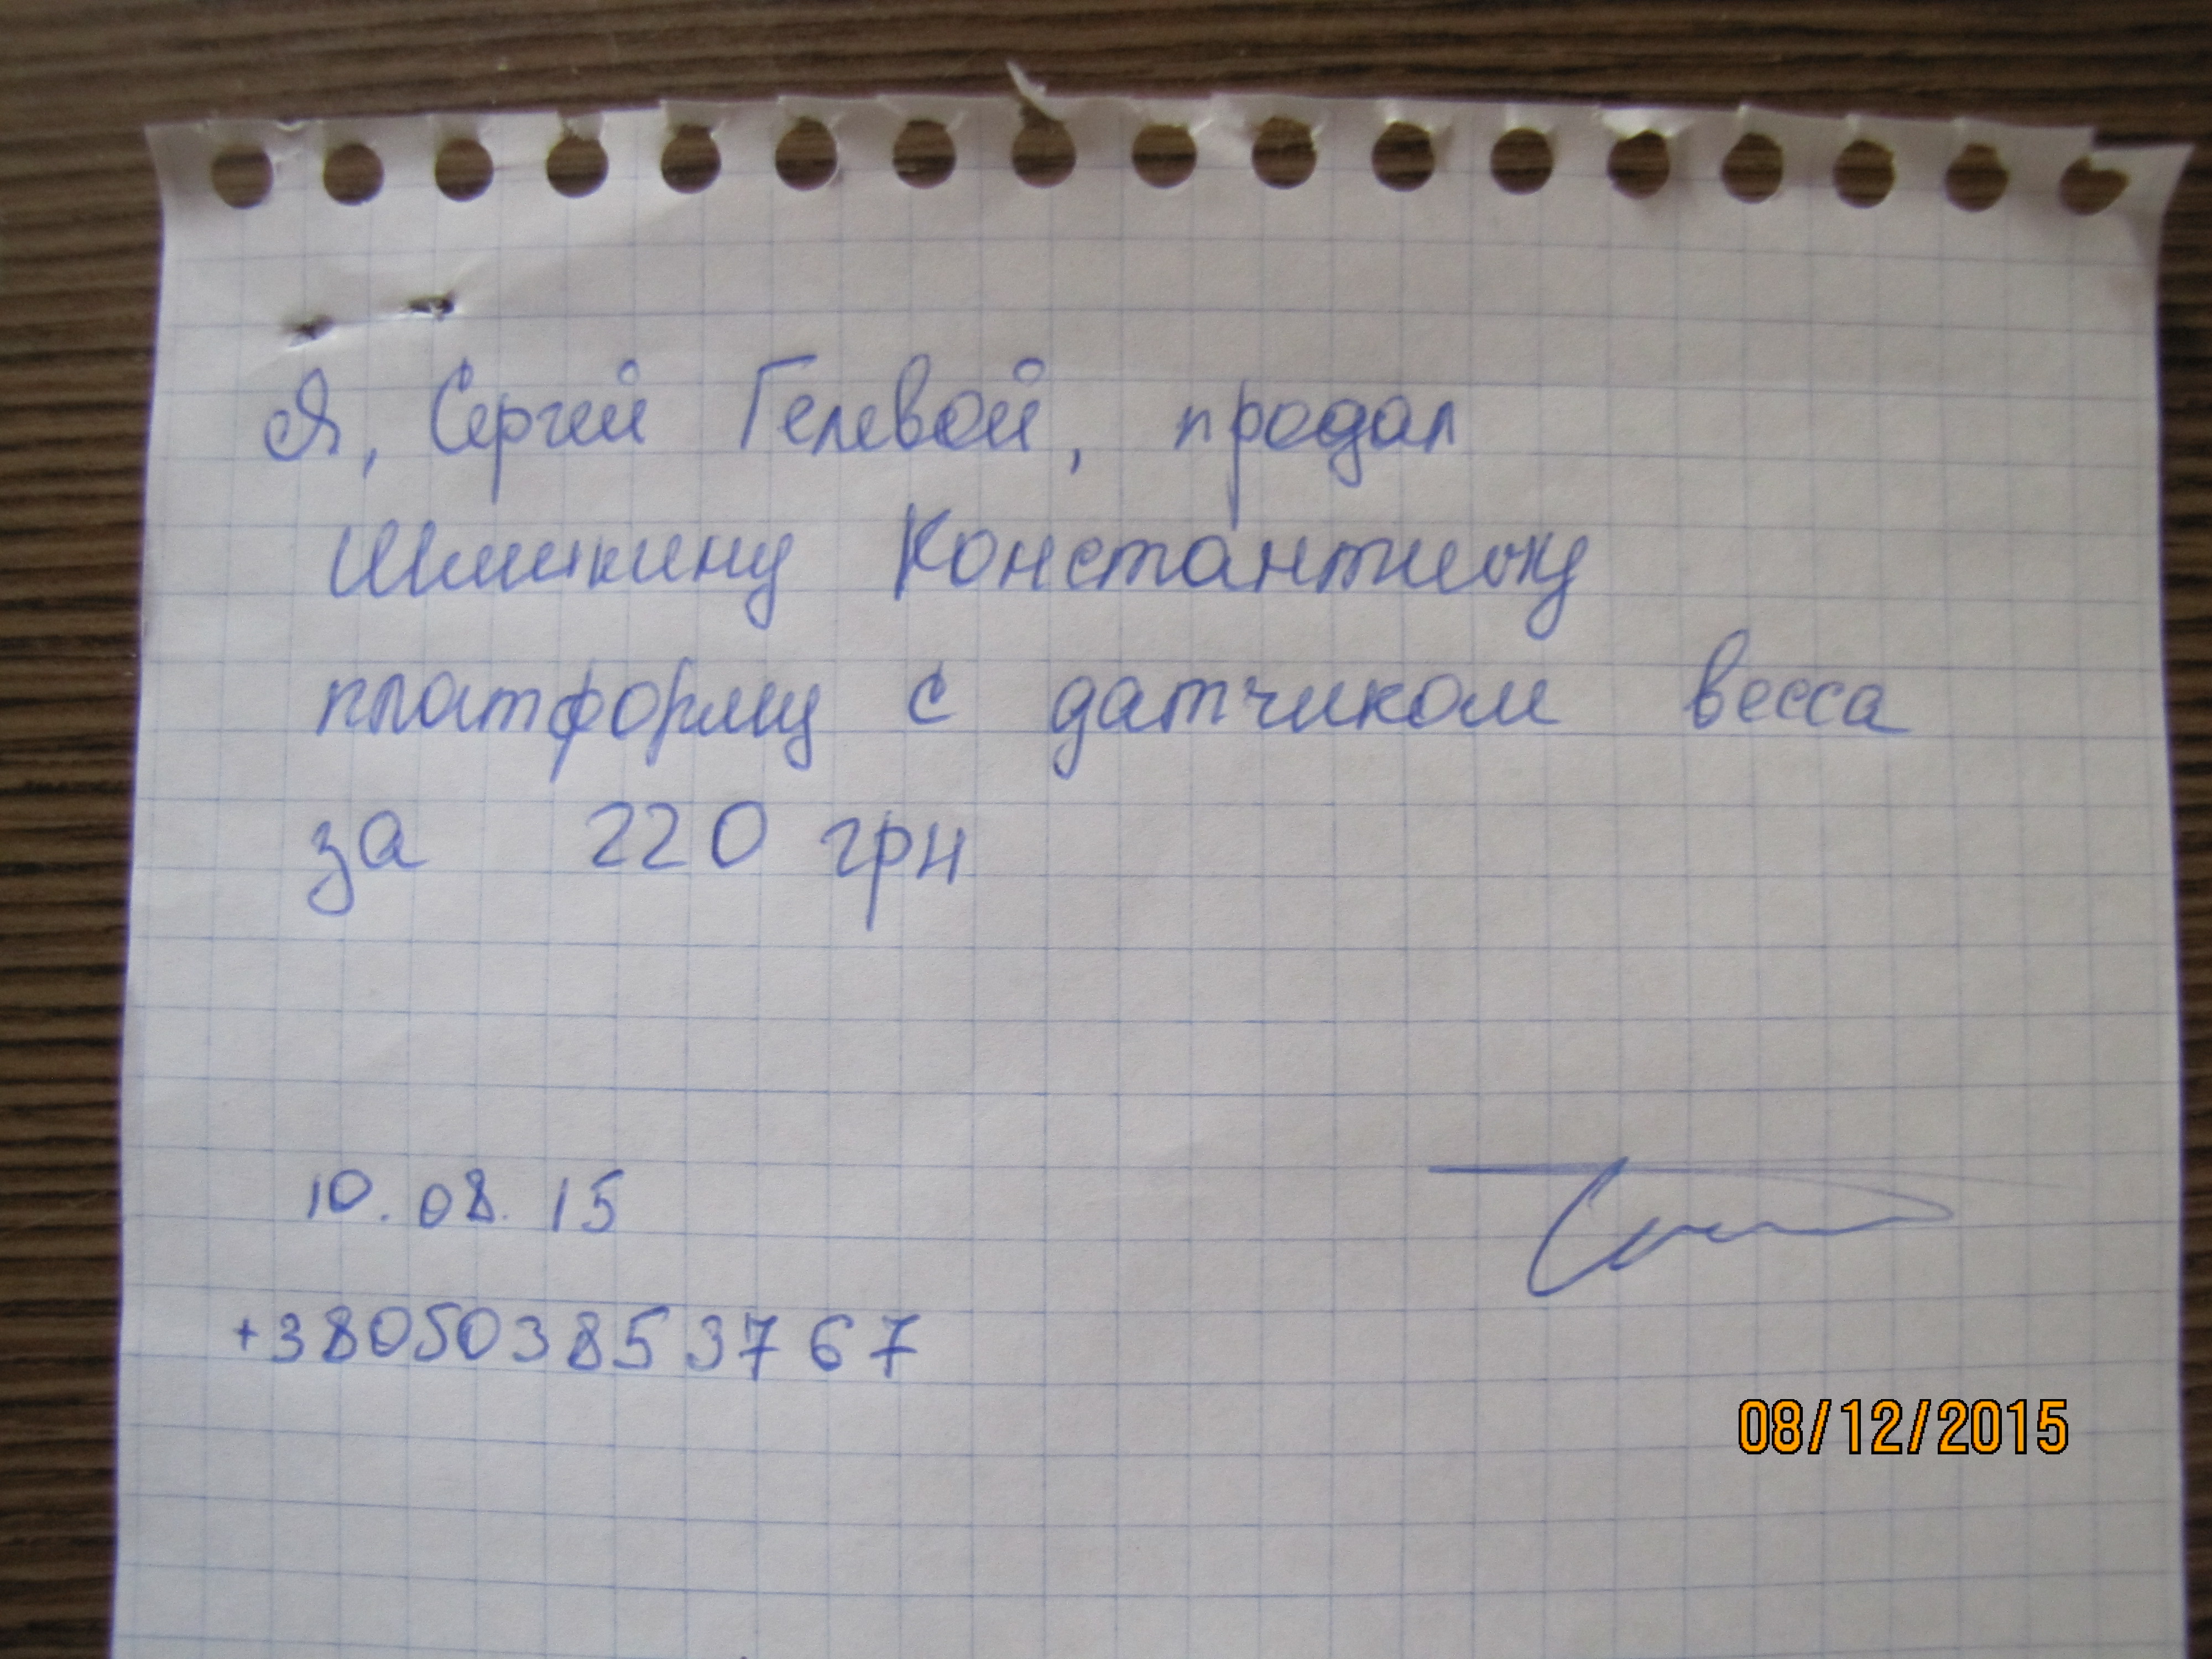 Я, Сергей Гелевой, продал
Шишкину Константину
платформу с датчиком весса
за 220 грн
10.08.15
+380503853767
08/12/2015